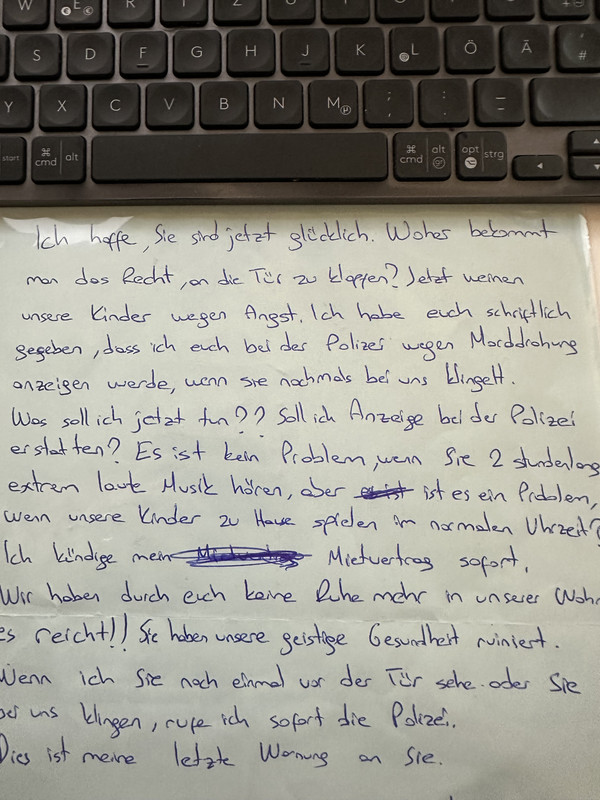 W E R T Z
S D F G H J K L Ö Ä #
Y X C V B N M ; :
start cmd alt cmd alt opt strg
Ich hoffe, Sie sind jetzt glücklich. Woher bekommt
man das Recht, an die Tür zu klopfen? Jetzt weinen
unsere Kinder wegen Angst. Ich habe euch schriftlich
gegeben, dass ich euch bei der Polizei wegen Morddrohung
anzeigen werde, wenn sie nochmals bei uns klingelt.
Was soll ich jetzt tun?? Soll ich Anzeige bei der Polizei
erstatten? Es ist kein Problem, wenn Sie 2 stundenlang
extrem laute Musik hören, aber ist es ein Problem,
wenn unsere Kinder zu Hause spielen im normalen Uhrzeit?
Ich kündige mein Mietvertrag sofort.
Wir haben durch euch keine Ruhe mehr in unserer Wohn
es reicht!! Sie haben unsere geistige Gesundheit ruiniert.
Wenn ich Sie noch einmal vor der Tür sehe oder Sie
bei uns klingen, rufe ich sofort die Polizei.
Dies ist meine letzte Warnung an Sie.